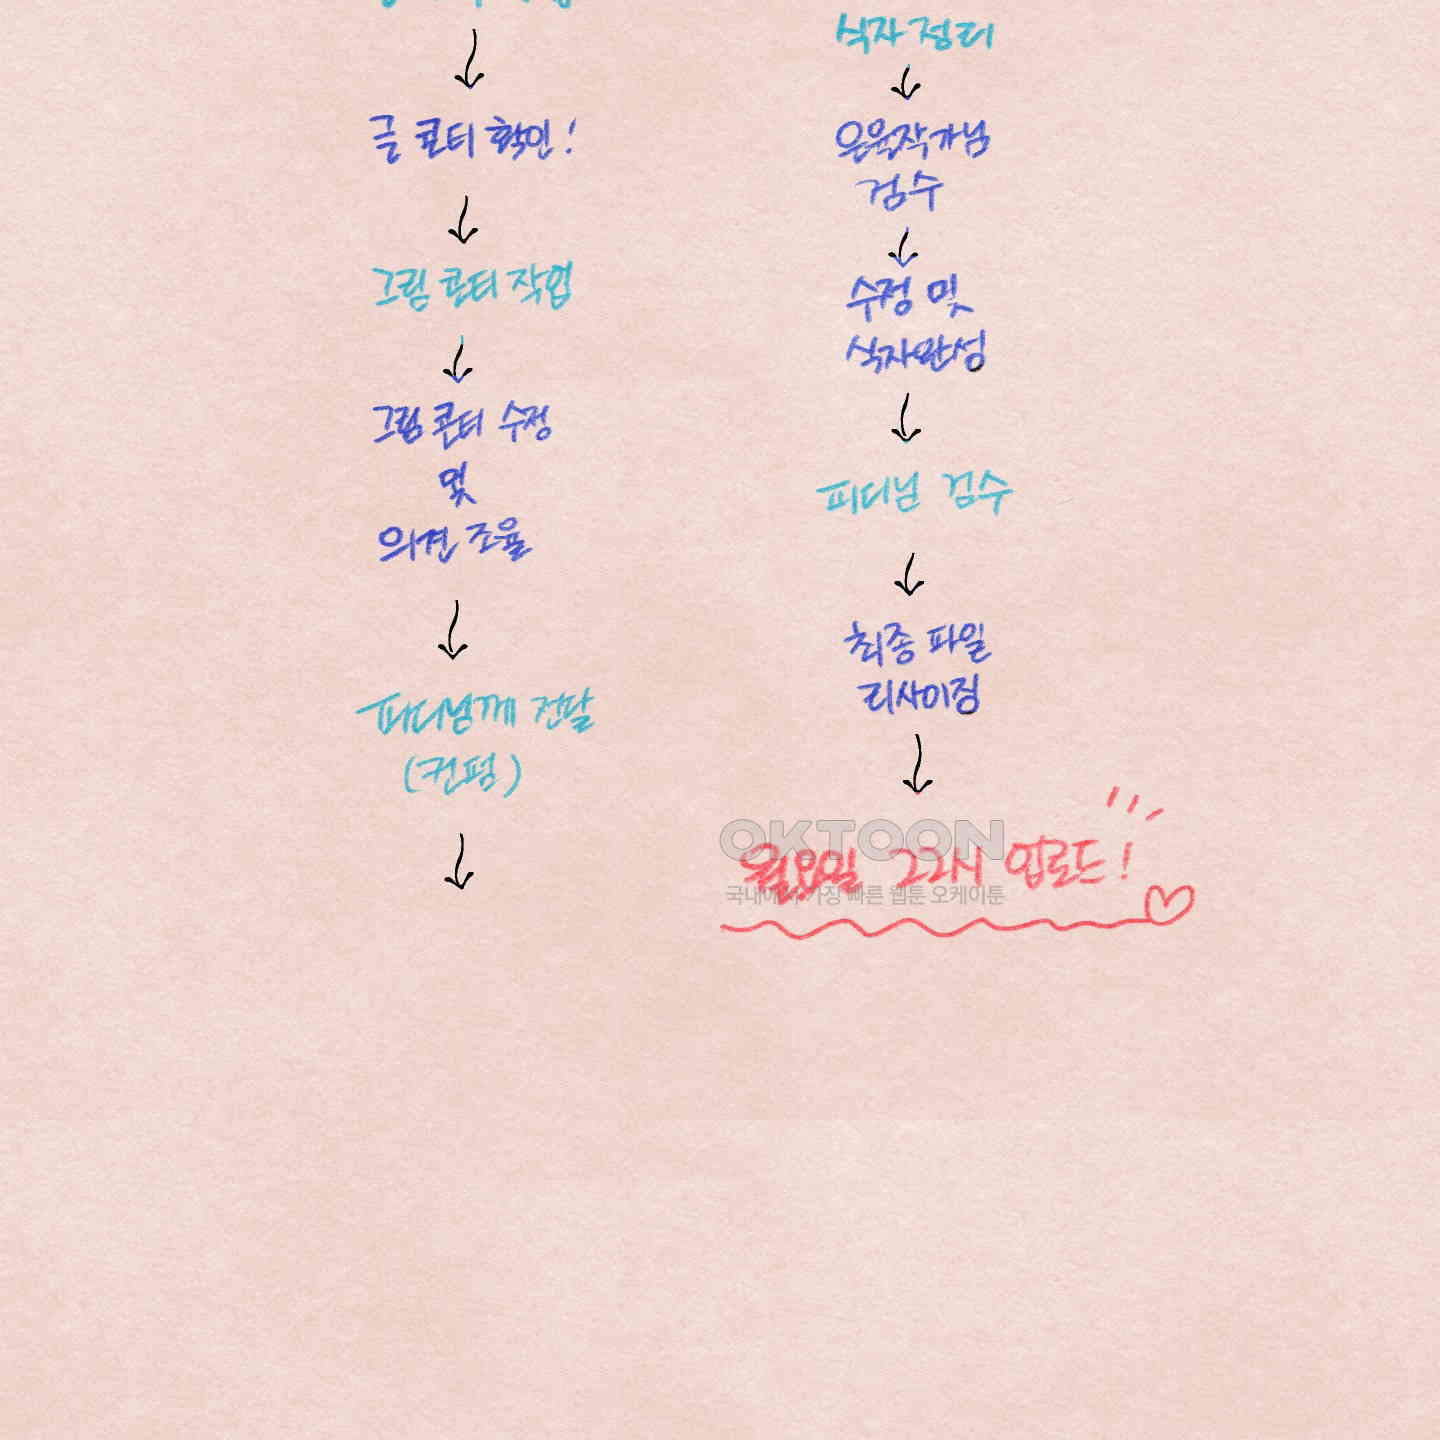 글 콘티 확인!
그림 콘티 작업
그림 콘티 수정
및
의견 조율
피디님께 전달
(컨펌)
식자 정리
은율작가님
검수
수정 및
식자완성
피디님 검수
최종 파일
리사이징
OKTOON
월요일 22시 업로드!
국내에서 가장 빠른 웹툰 오케이툰